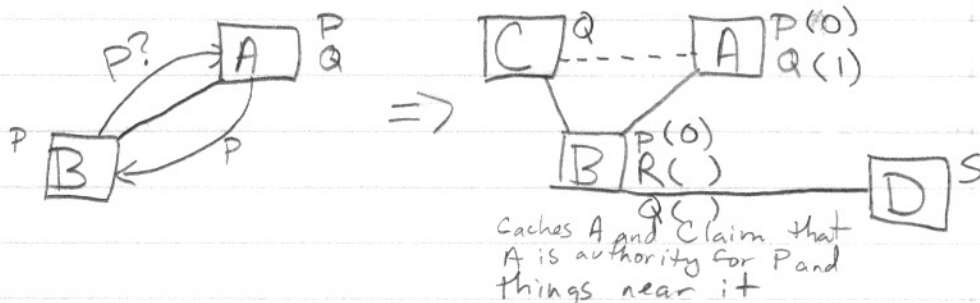 P?
A
P
Q
P
B
P
=>
C
Q
A
P(0)
Q(1)
B
P(0)
R( )
Q( )
D
S
Caches A and Claim that
A is authority for P and
things near it